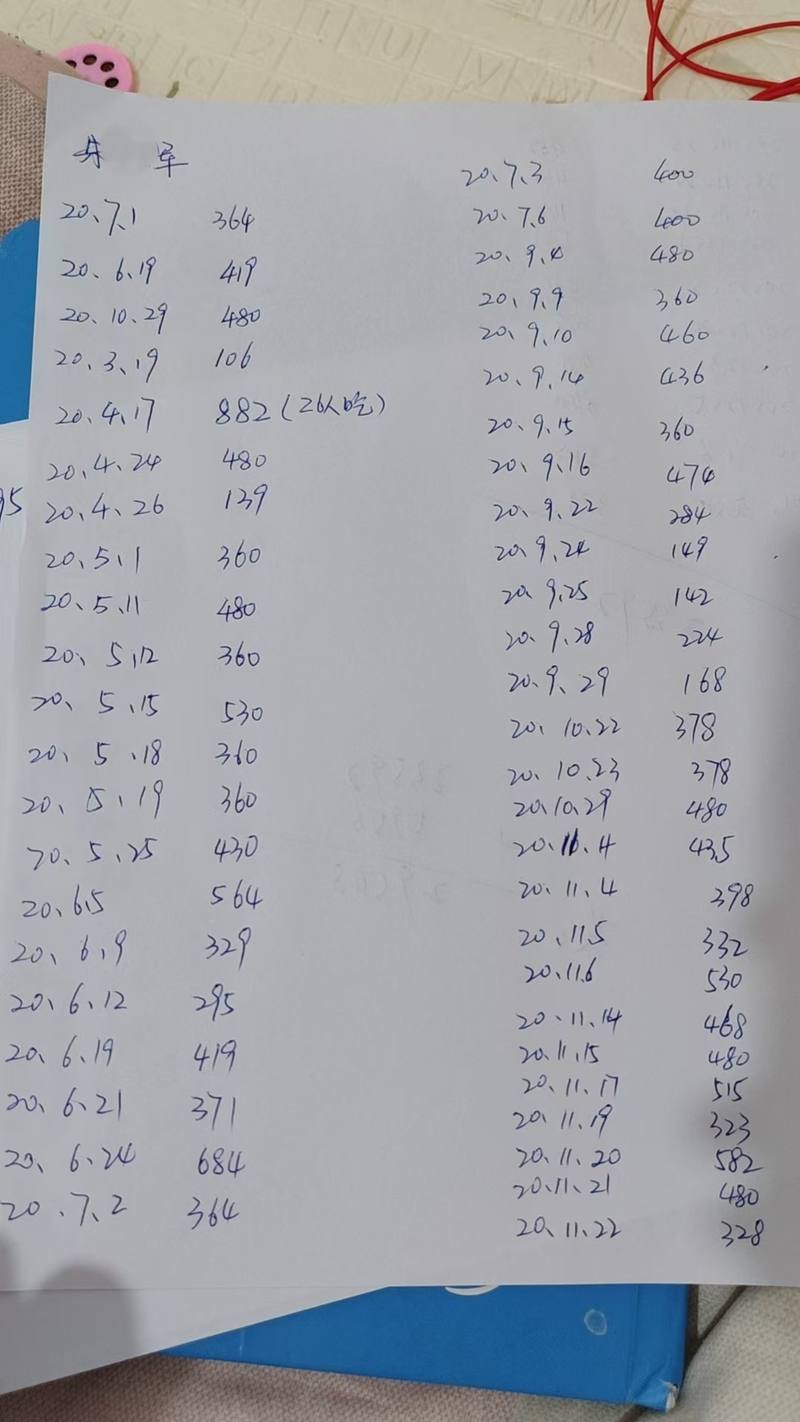 20、7、1 364
20、6、19 419
20、10、29 480
20、3、19 106
20、4、17 882(26人吃)
20、4、24 480
20、4、26 139
20、5、1 360
20、5、11 480
20、5、12 360
20、5、15 530
20、5、18 360
20、5、19 360
20、5、25 430
20、6、5 564
20、6、9 329
20、6、12 295
20、6、19 419
20、6、21 371
20、6、24 684
20、7、2 364
20、7、3 400
20、7、6 400
20、9、4 480
20、9、9 360
20、9、10 460
20、9、14 436
20、9、15 360
20、9、16 474
20、9、22 284
20、9、24 149
20、9、25 142
20、9、28 224
20、9、29 168
20、10、22 378
20、10、23 378
20、10、29 480
20、11、4 435
20、11、4 398
20、11、5 332
20、11、6 530
20、11、14 468
20、11、15 480
20、11、17 515
20、11、19 323
20、11、20 582
20、11、21 480
20、11、22 328